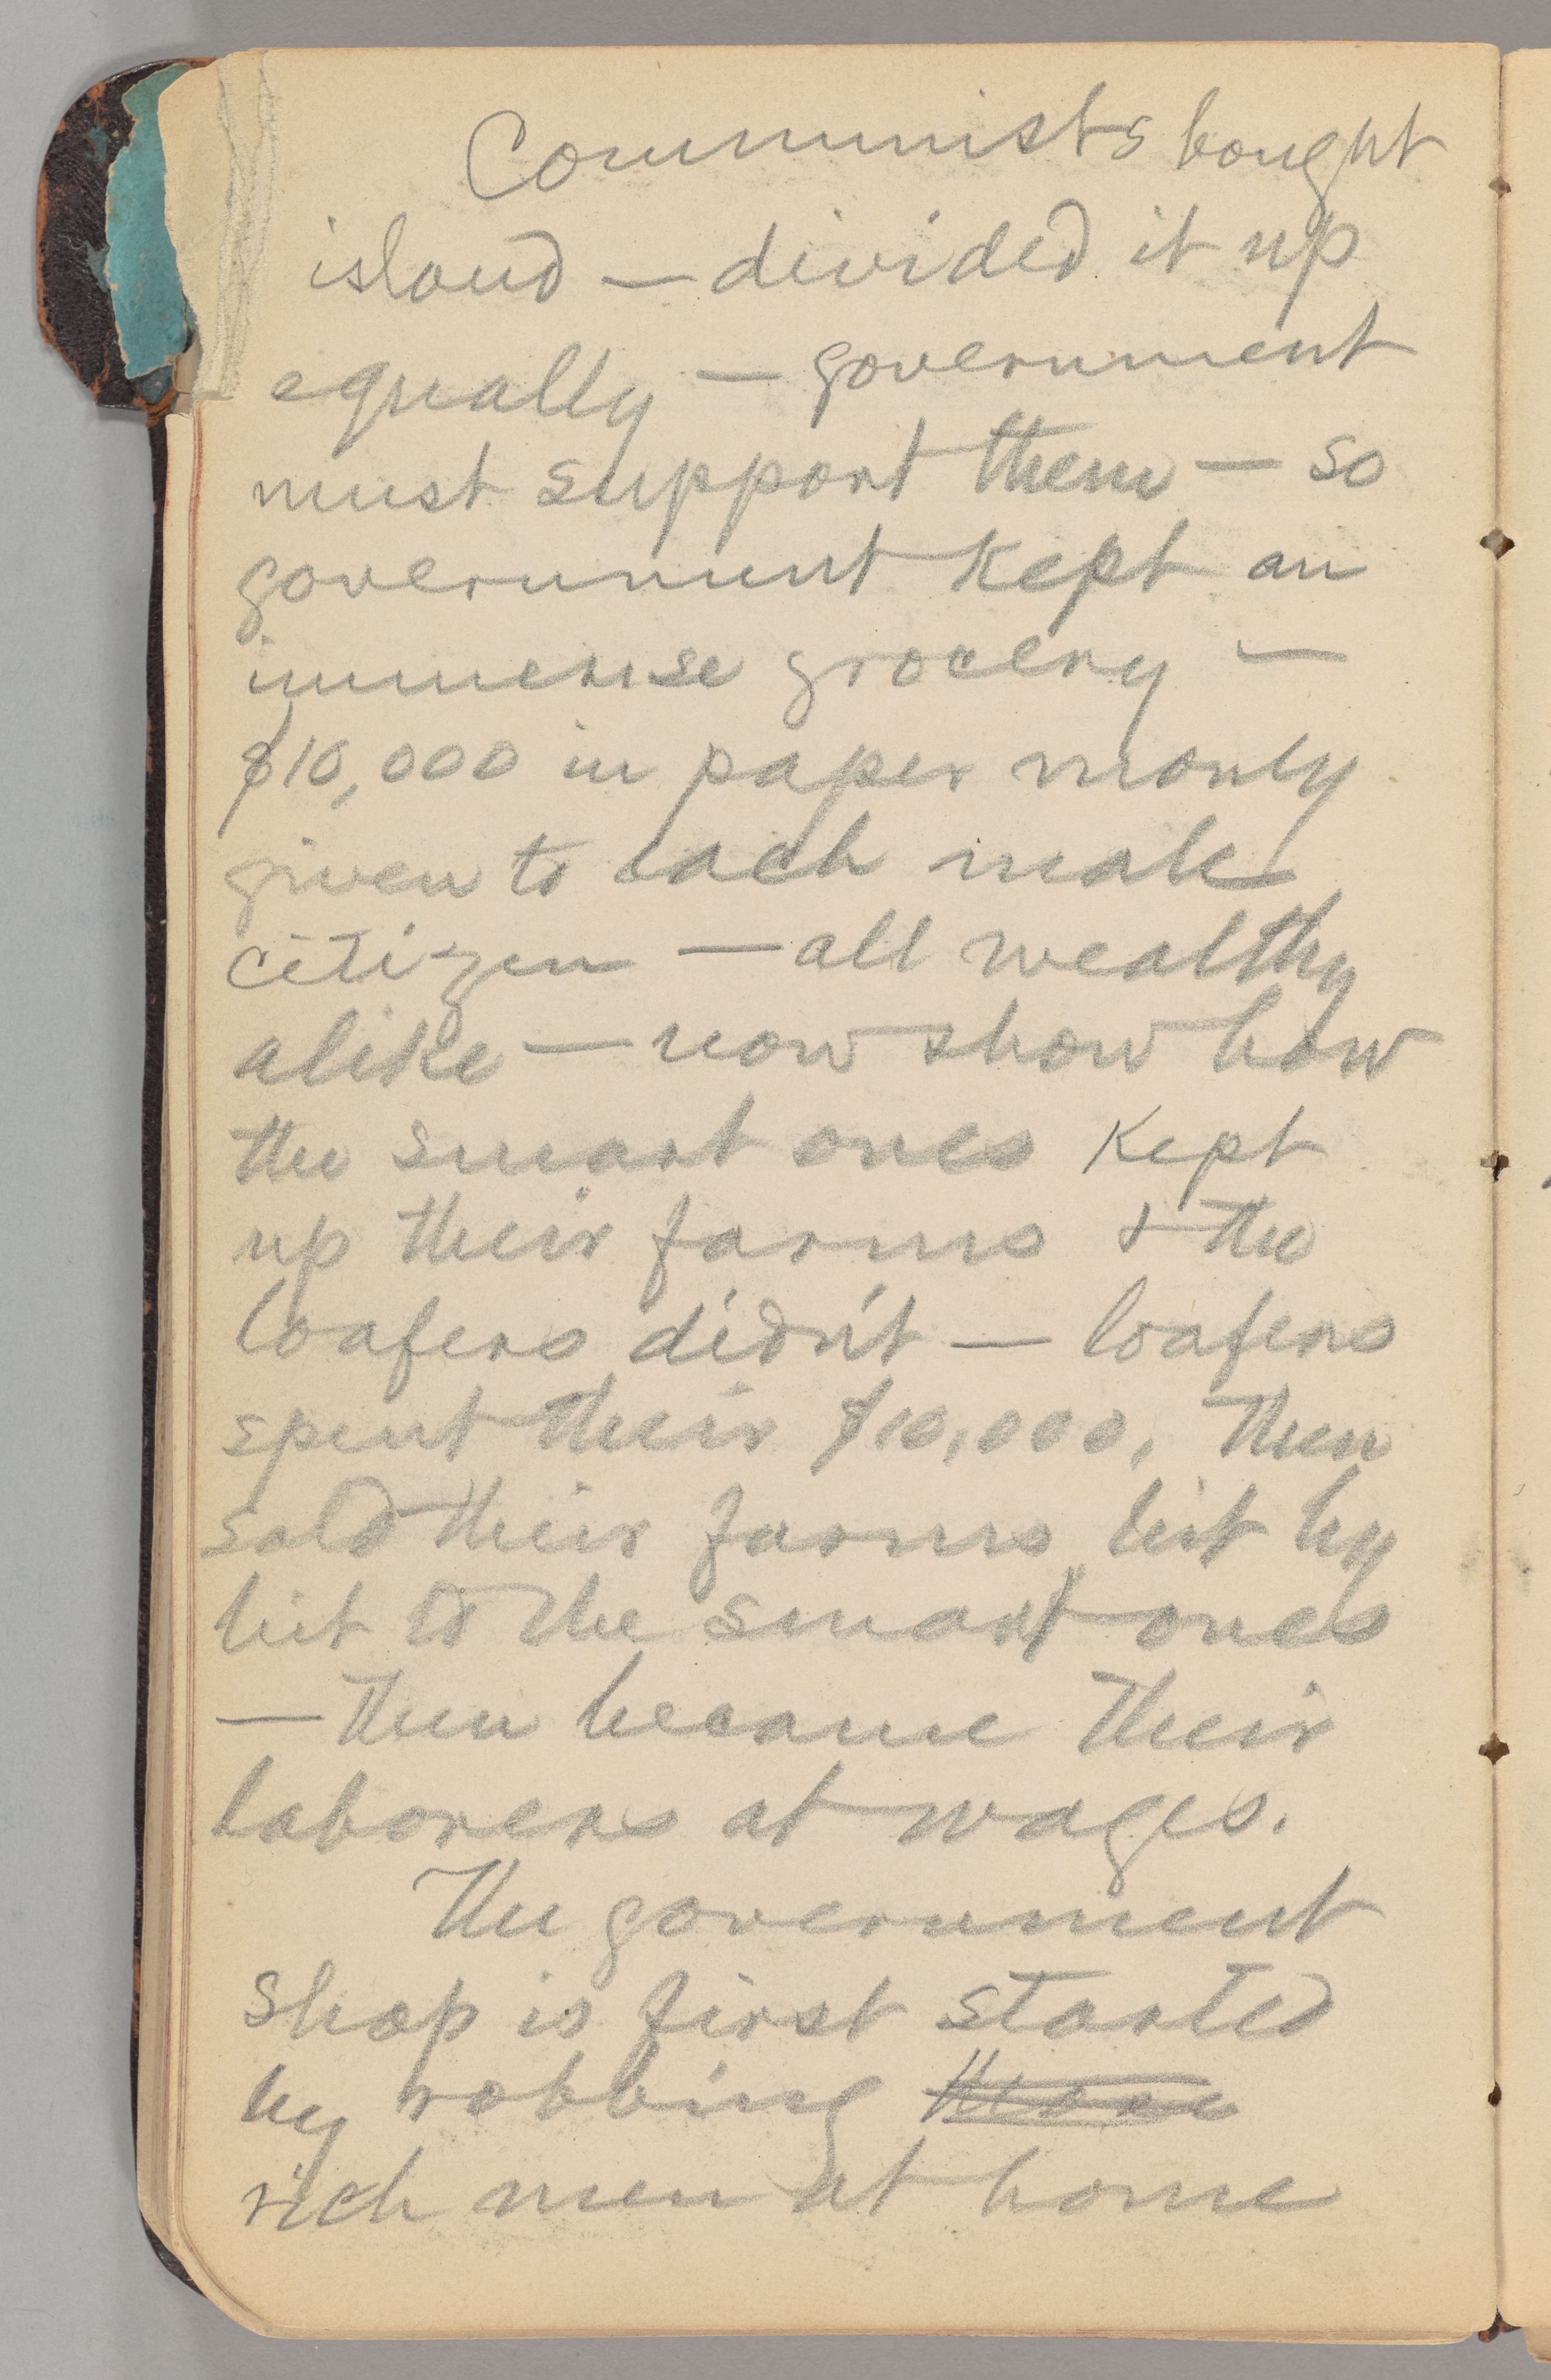 Communists bought
island — divided it up
equally — government
must support them — so
government kept an
immense grocery —
$10,000 in paper money
given to each male
citizen — all wealthy
alike — now show how
the smart ones kept
up their farms & the
loafers didn't — loafers
spent their $10,000, then
sold their farms bit by
bit to the smart ones
— then became their
laborers at wages.
The government
shop is first started
by robbing
rich men at home